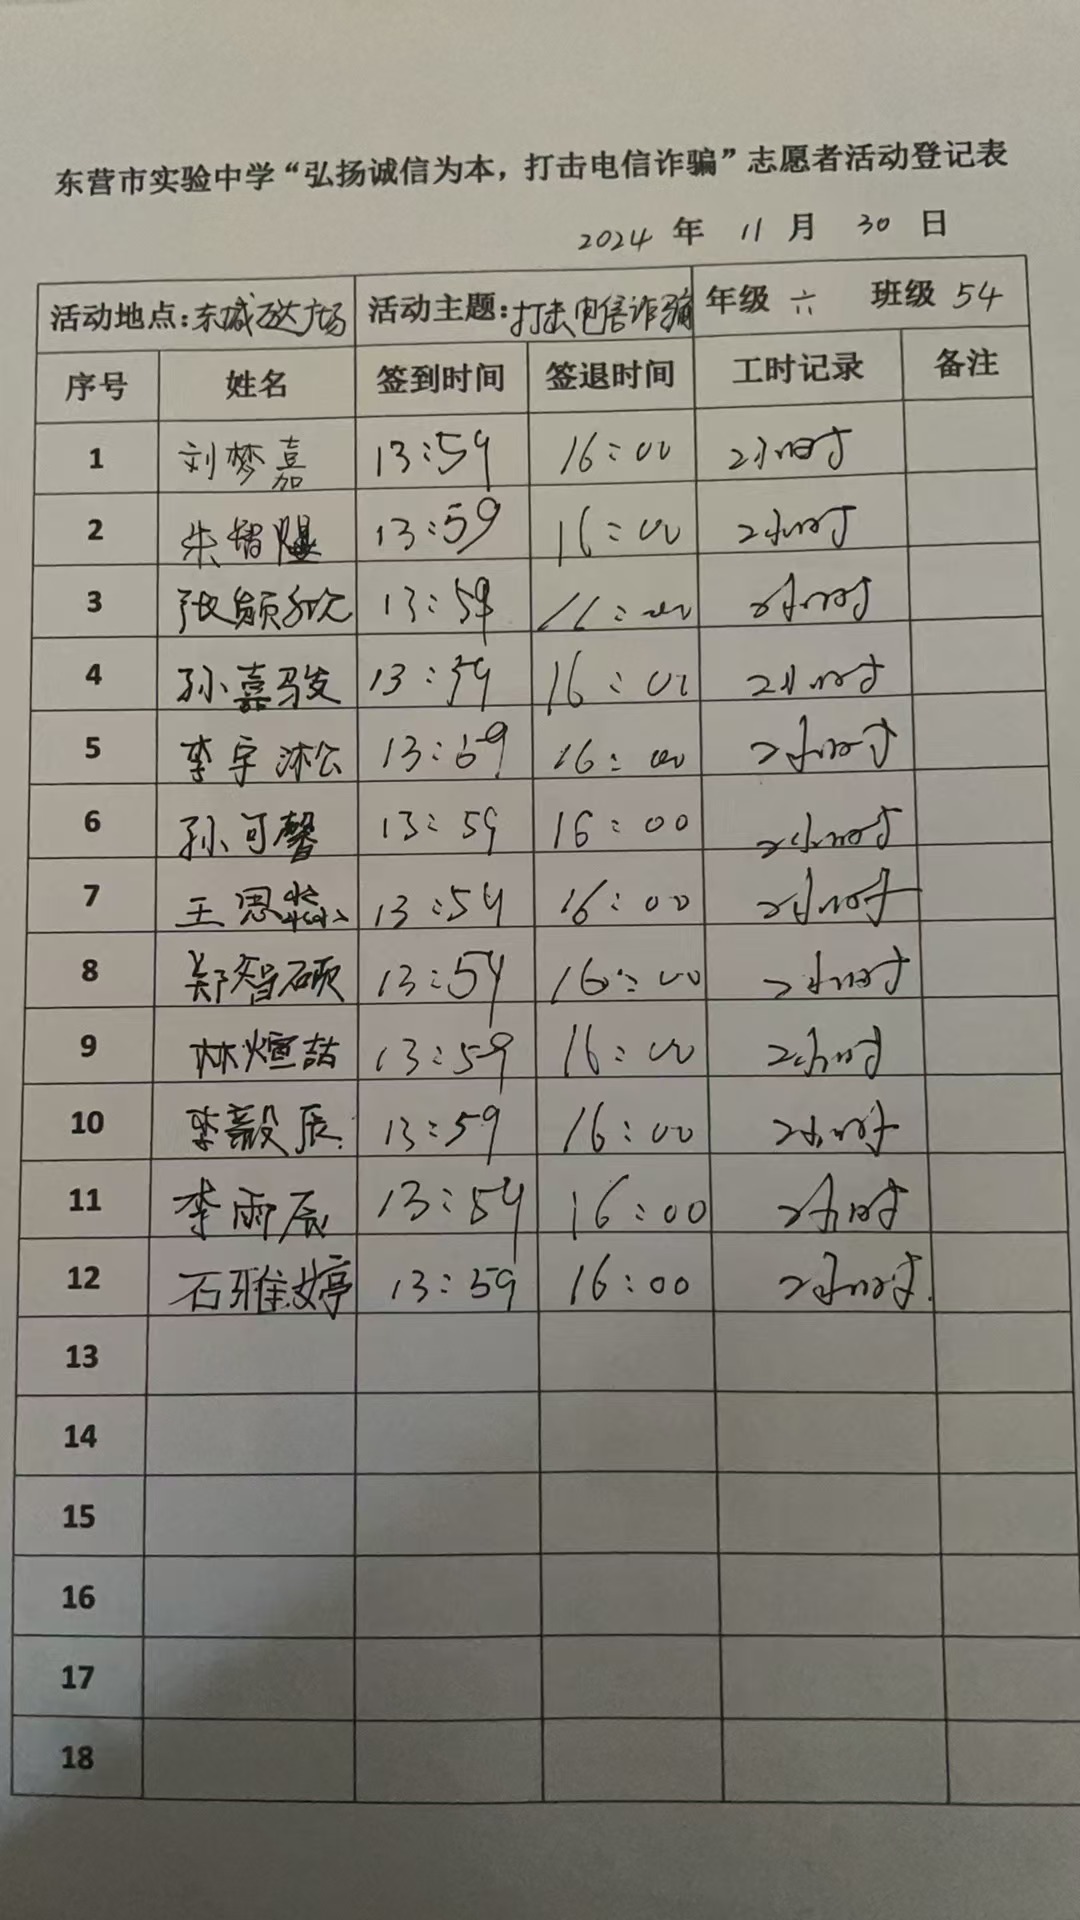 东营市实验中学“弘扬诚信为本，打击电信诈骗”志愿者活动登记表
2024 年 11 月 30 日
活动地点：东城万达广场 活动主题：打击电信诈骗 年级 六 班级 54
序号 姓名 签到时间 签退时间 工时记录 备注
1 刘梦嘉 13:59 16:00 2小时
2 朱 13:59 16:00 2小时
3 张颜 13:59 16:00 2小时
4 孙嘉骏 13:59 16:00 2小时
5 李宇淞 13:59 16:00 2小时
6 孙可馨 13:59 16:00 2小时
7 王思 13:59 16:00 2小时
8 郑智硕 13:59 16:00 2小时
9 林煊喆 13:59 16:00 2小时
10 李毅辰 13:59 16:00 2小时
11 李雨辰 13:59 16:00 2小时
12 石雅婷 13:59 16:00 2小时.
13
14
15
16
17
18